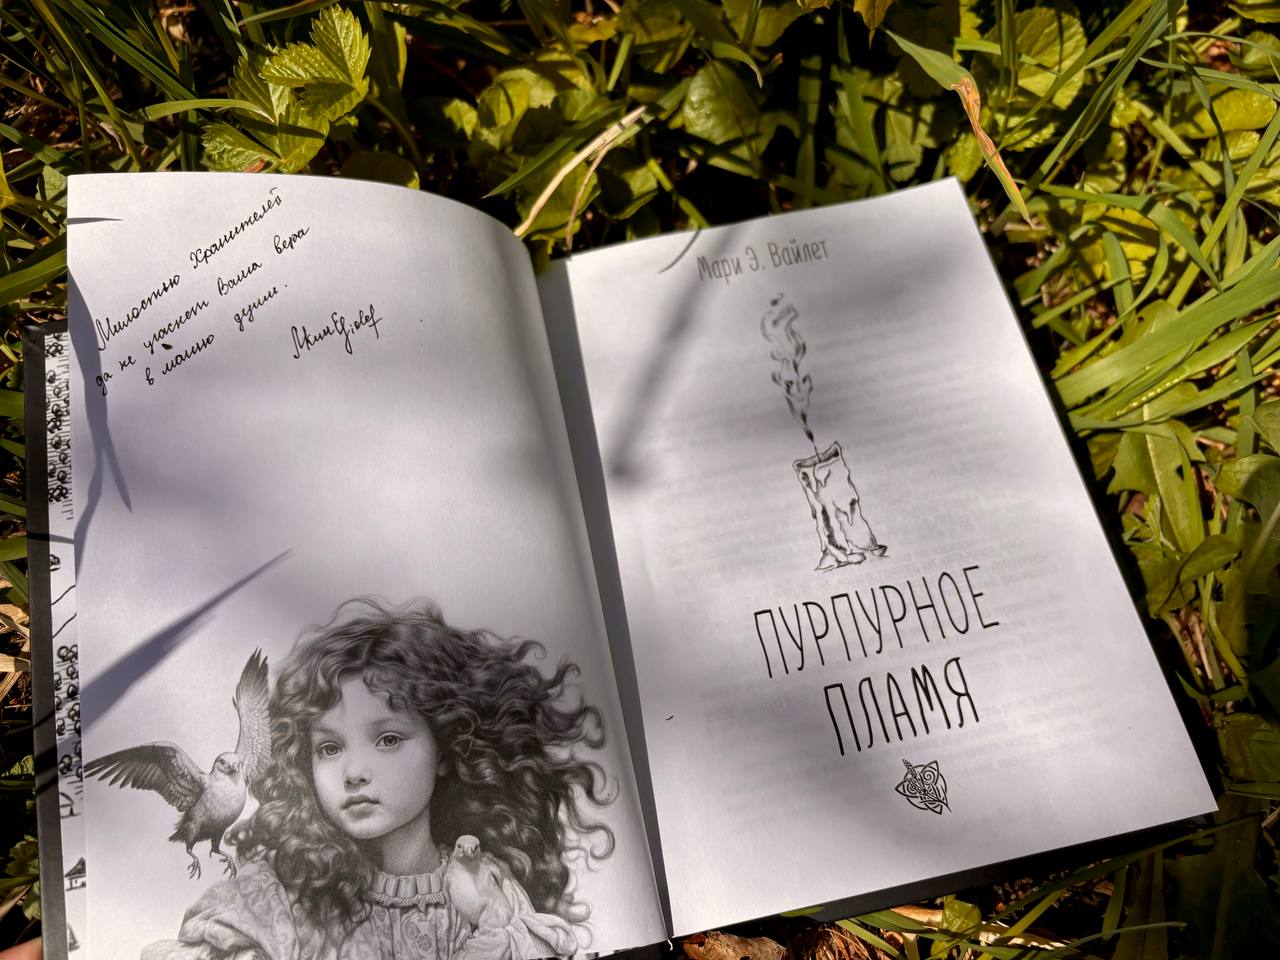 Милостью Хранителей
да не угаснет Ваша вера
в магию души.
Мари Э. Вайлет
ПУРПУРНОЕ
ПЛАМЯ